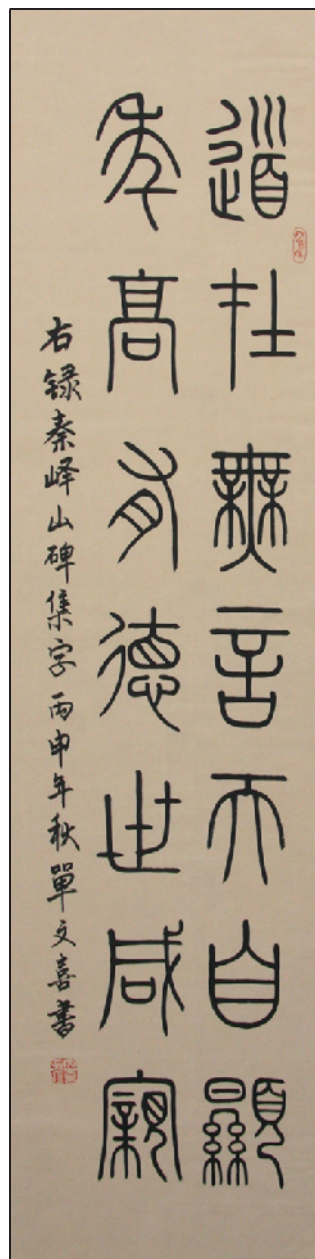 道在無言天自顯
年高有德世咸親
右録秦峄山碑集字丙申年秋單文喜書